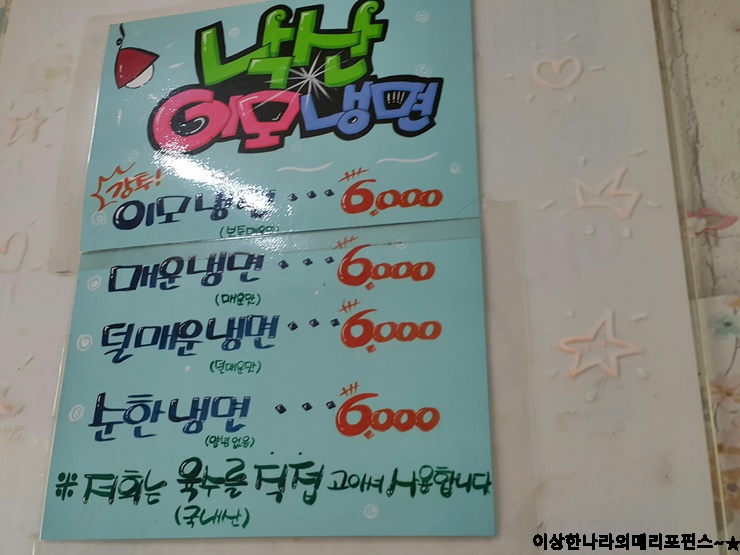 낙산
이모냉면
강추!
이모냉면 ··· ₩6,000
(보통매운맛)
매운냉면 ··· ₩6,000
(매운맛)
덜매운냉면 ··· ₩6,000
(덜매운맛)
순한냉면 ··· ₩6,000
(양념없음)
※ 저희는 육수를 직접 고아서 사용합니다
(국내산)
이상한나라의매리포핀스~★